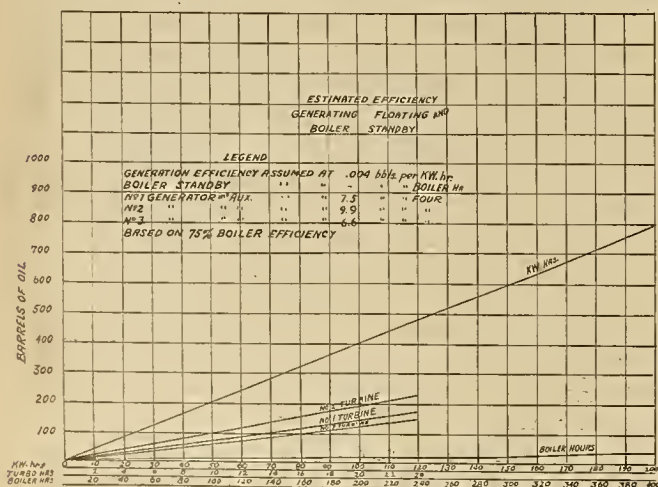 ESTIMATED EFFICIENCY
GENERATING FLOATING AND
BOILER STANDBY
LEGEND
GENERATION EFFICIENCY ASSUMED AT .004 bbls. per KW. hr.
BOILER STANDBY " " - " " BOILER HR
No 1 GENERATOR AUX. " " 7.5 " " FOUR
No 2 " " " " 9.9 " " "
No 3 " " " " 6.6 " " "
BASED ON 75% BOILER EFFICIENCY
1000
900
800
700
600
500
400
300
200
100
BARRELS OF OIL
KW HRS.
NO. 2 TURBINE
NO. 1 TURBINE
BOILER HOURS
KW. hrs 0 10 20 30 40 50 60 70 80 90 100 110 120 130 140 150 160 170 180 190 200
TURBO HRS 2 4 6 8 10 12 14 16 18 20
BOILER HRS 20 40 60 80 100 120 140 160 180 200 220 240 260 280 300 320 340 360 380 400